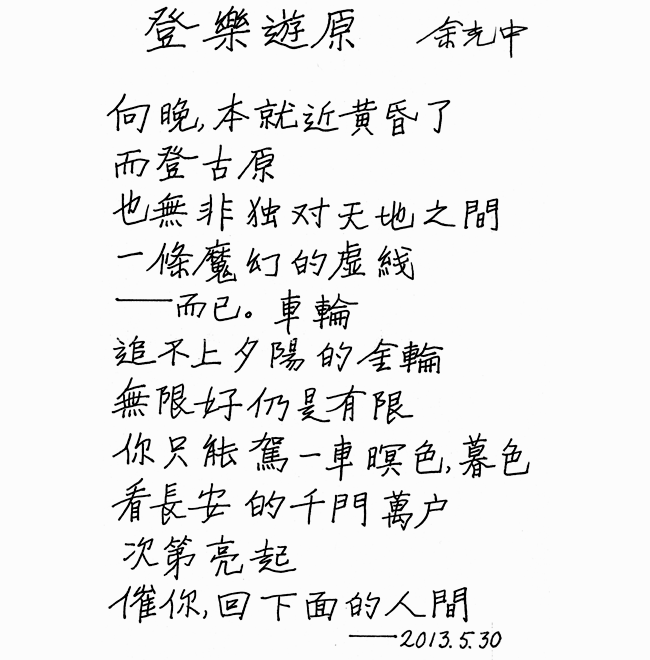 登樂遊原 余光中
向晚,本就近黃昏了
而登古原
也無非独对天地之間
一條魔幻的虚綫
——而已。車輪
追不上夕陽的金輪
無限好仍是有限
你只能駕一車暝色,暮色
看長安的千門萬户
次第亮起
催你,回下面的人間
——2013.5.30